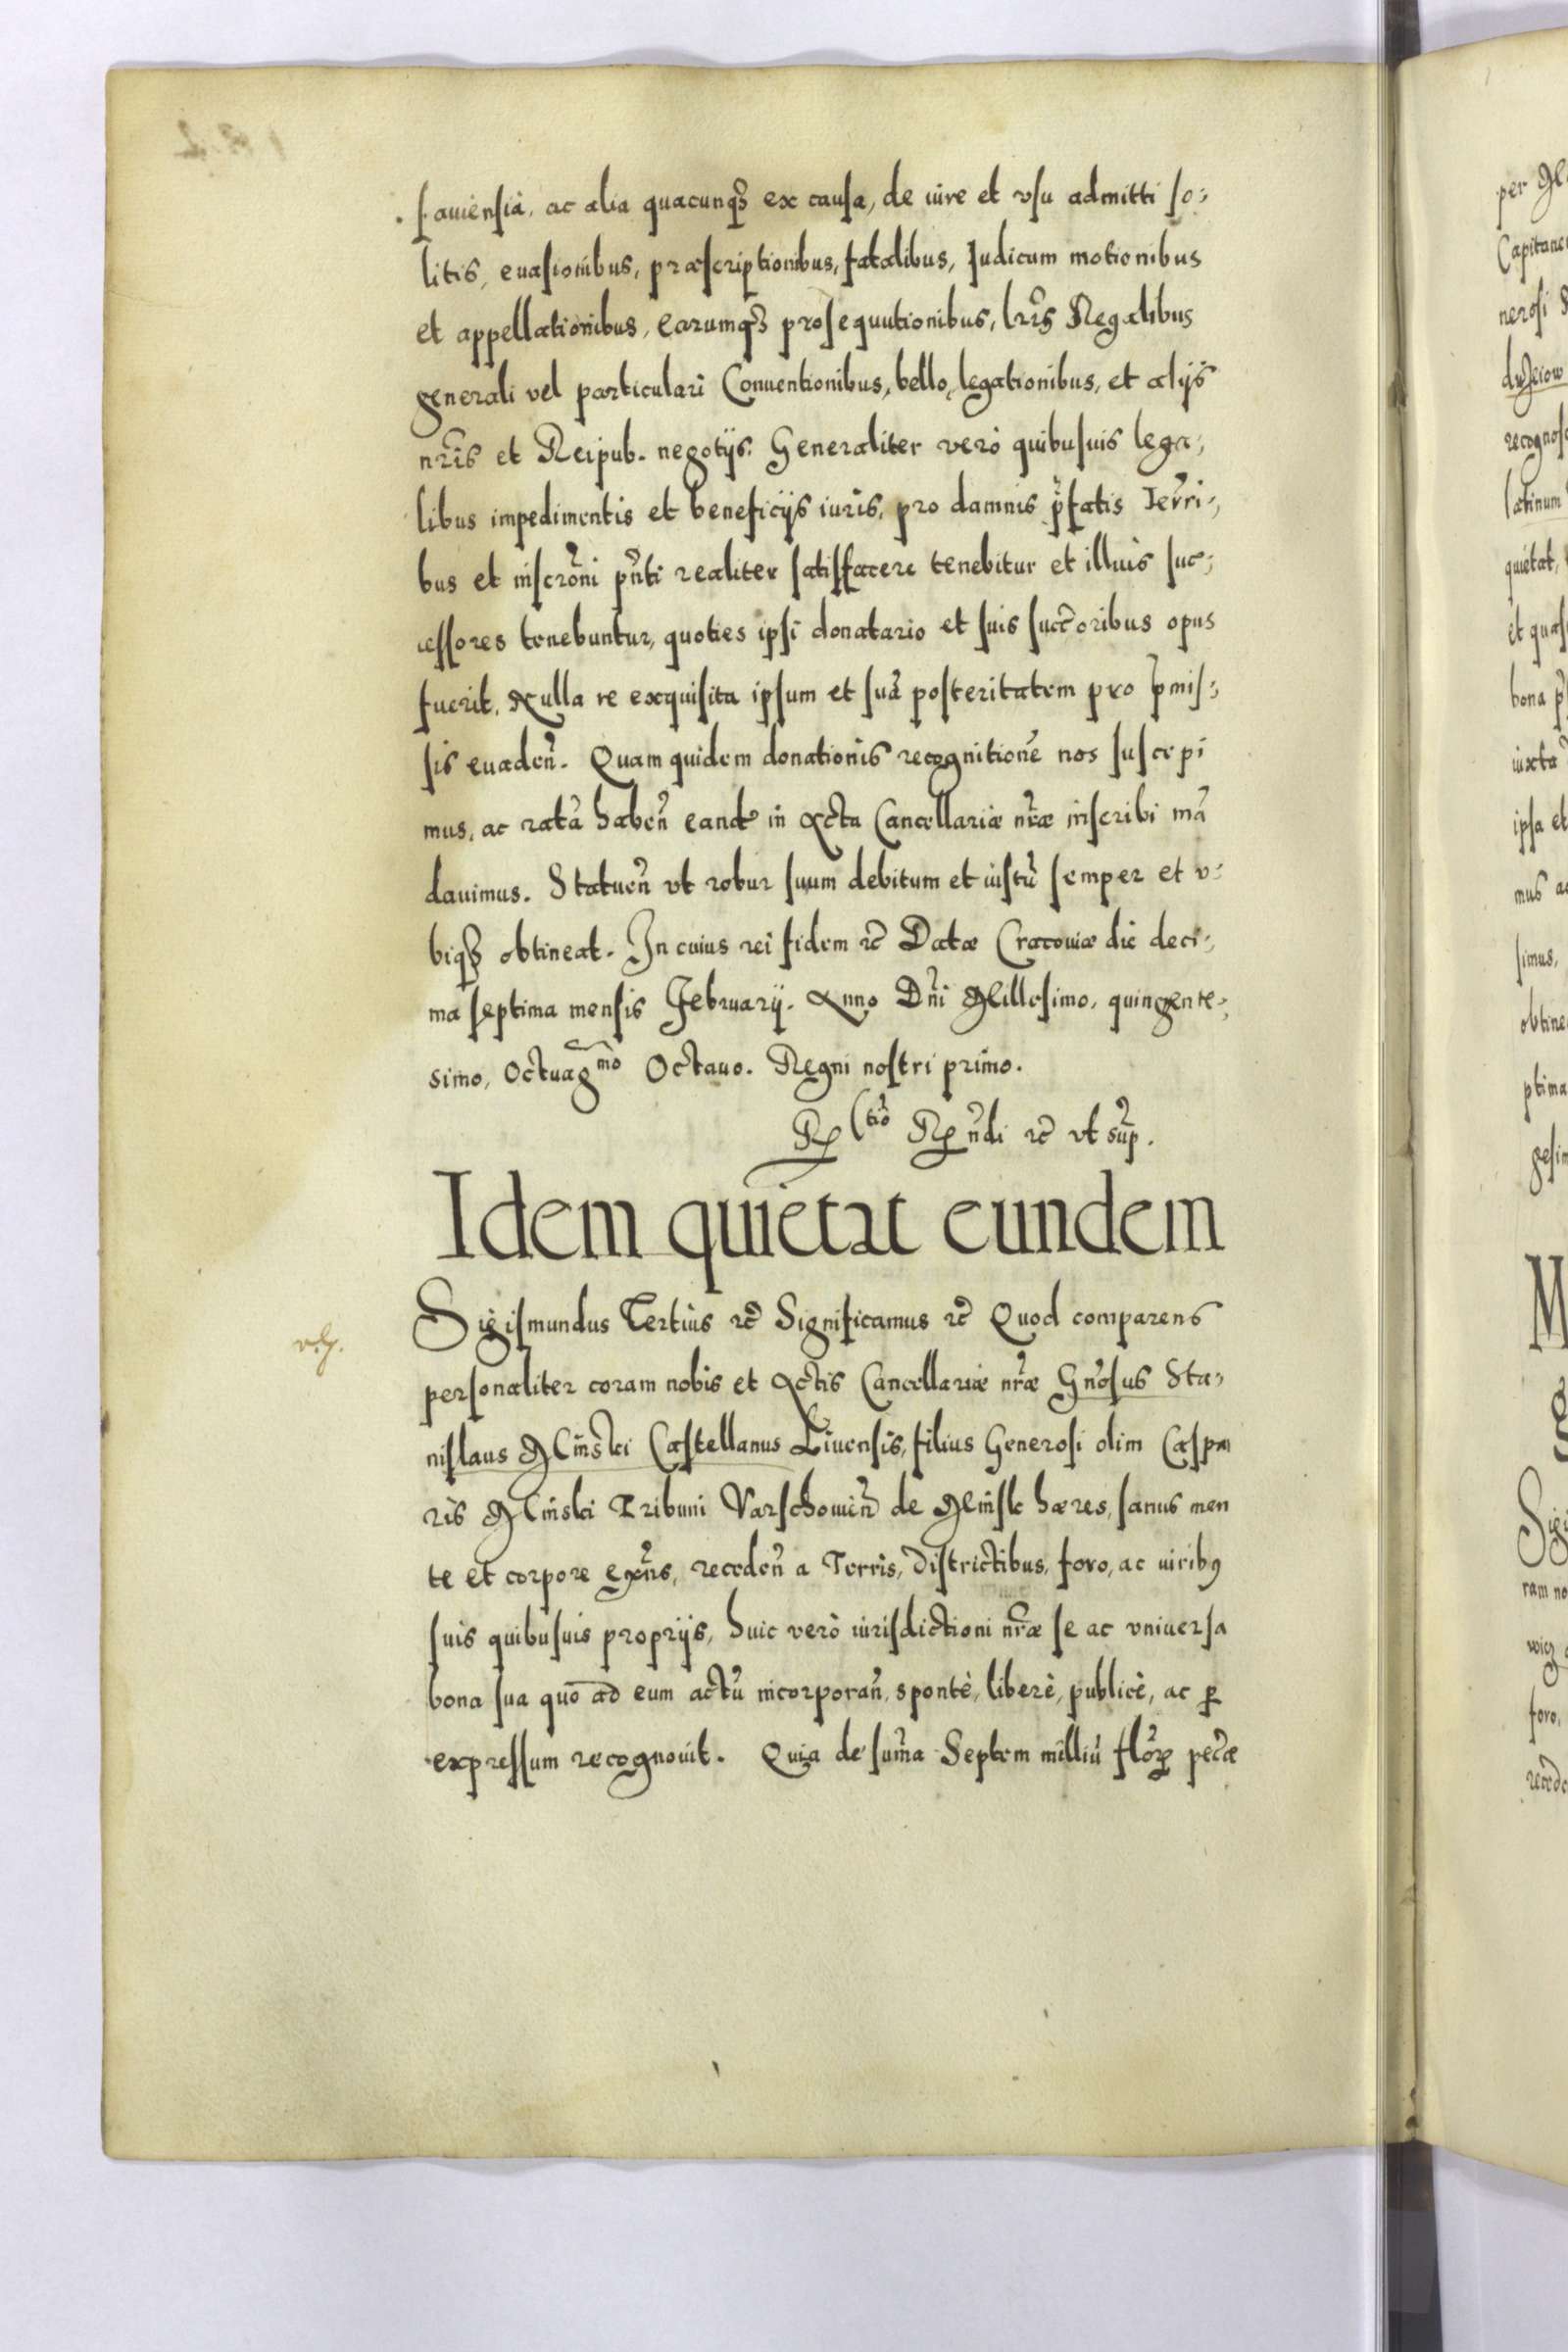 fauiensia, ac alia quacunqȝ ex causa, de iure et vsu admitti so-
litis, euasionibus, præscriptionibus, fatalibus, Iudicum motionibus
et appellationibus, earumqȝ prosequutionibus, lrĩs Regalibus
generali vel particulari Conuentionibus, bello, legationibus, et alijs
nrĩs et Reipub. negotijs. Generaliter verò quibusuis lega-
libus impedimentis et beneficijs iuris, pro damnis p̃fatis Ter̃ri-
bus et inscrõni pñti realiter satisfacere tenebitur et illius suc-
cessores tenebuntur, quoties ipsi donatario et suis succ̃oribus opus
fuerit, Nulla re exquisita ipsum et suã posteritatem pro p̃mis-
sis euadeñ. Quam quidem donationis recognitionẽ nos suscepi
mus, ac ratã habeñ eandẽ in Acta Cancellariæ nrã̃e inscribi mã
dauimus. Statueñ vt robur suum debitum et iustũ semper et v-
biqȝ obtineat. In cuius rei fidem ꝛc̃ Datæ Cracouiæ die deci-
ma septima mensis Februarij. Anno Dñi Millesimo, quingente-
simo, Octuagᵐᵒ Octauo. Regni nostri primo.
ndi ꝛc̃ vt sup̃.
Idem quietat eundem
Sigismundus Tertius ꝛc̃ Significamus ꝛc̃ Quod comparens
personaliter coram nobis et Actis Cancellariæ nrã̃e Gnõsus Sta-
nislaus Minski Castellanus Liuensis, filius Generosi olim Caspa
ris Minski Tribuni Varschouieñ de Minsk hæres, sanus men
te et corpore exñs, recedeñ a Terris, Districtibus, foro, ac iuribꝰ
suis quibusuis proprijs, huic verò iurisdictioni nrã̃e se ac vniuersa
bona sua quo ad eum actũ incorporañ, spontè, liberè, publicè, ac ꝑ
expressum recognouit. Quia de sum̃a Septem milliũ flõꝝ pec̃æ